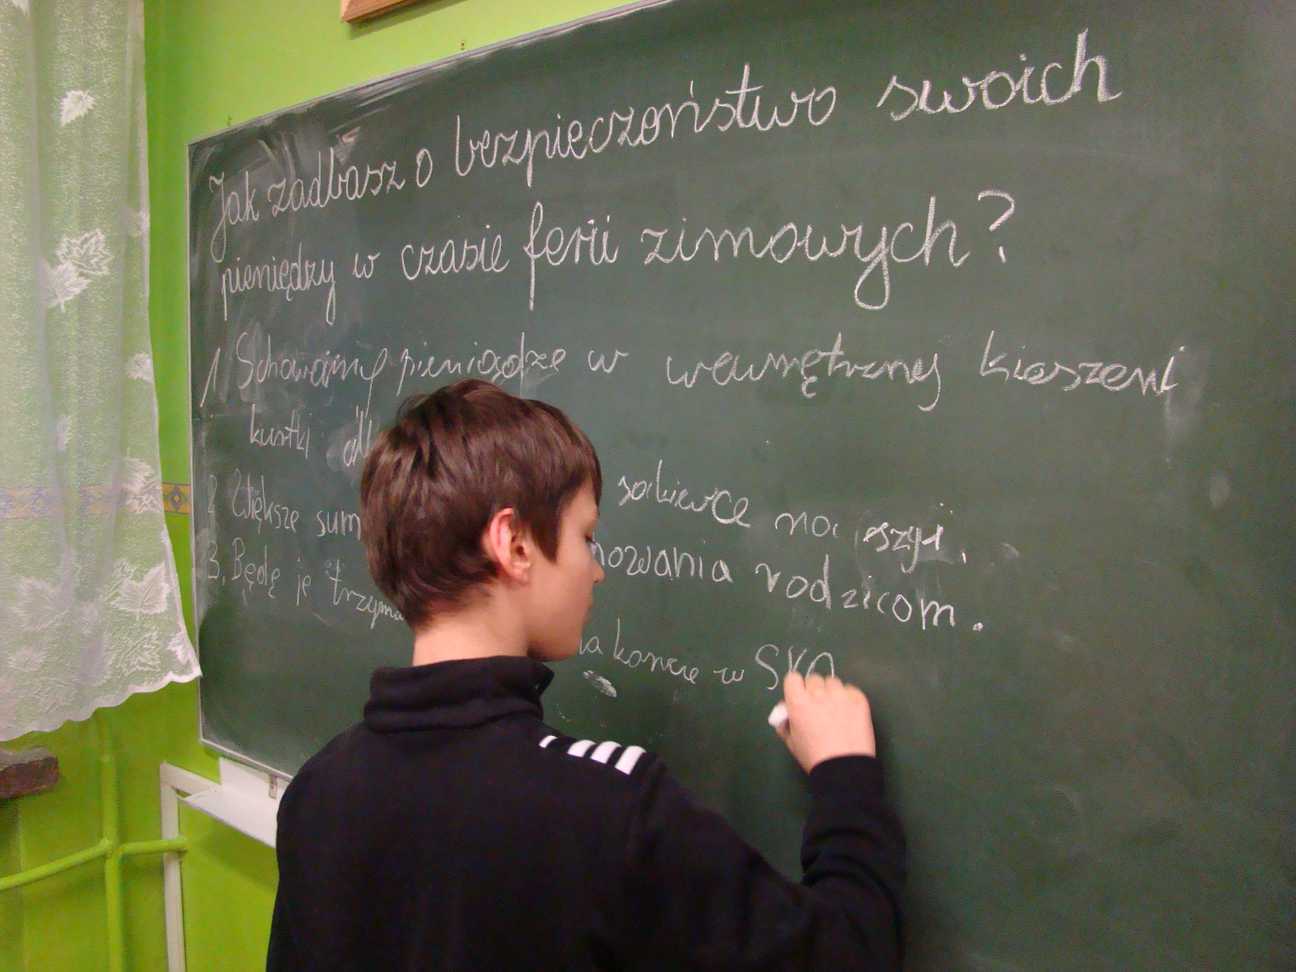 Jak zadbasz o bezpieczeństwo swoich
pieniędzy w czasie ferii zimowych?
1. Schowajmy pieniądze w wewnętrznej kieszeni
kurtki
sakiewce na szyi.
2 Większe sum nowania rodzicom.
3. Będę je trzyma na koncie w SKO